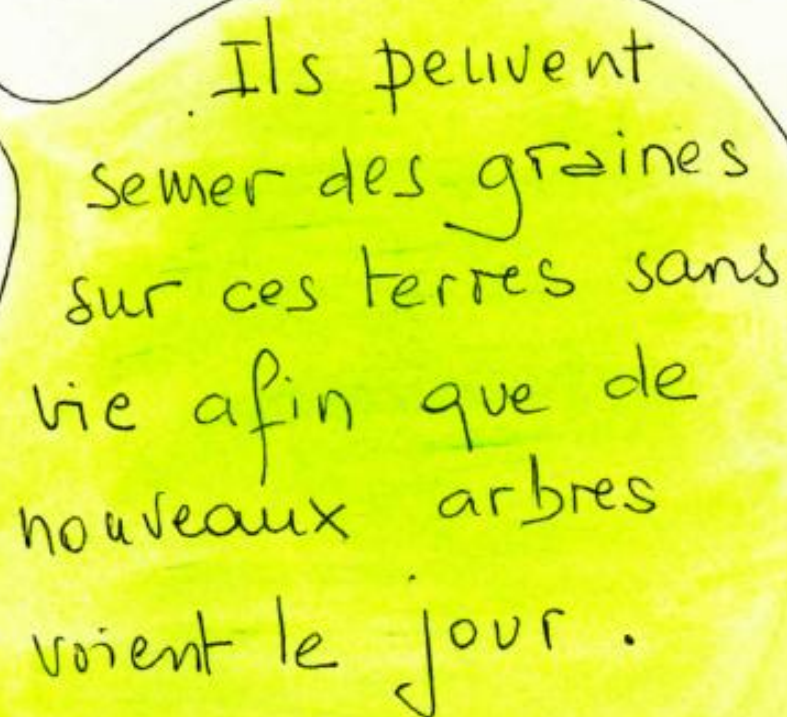 Ils peuvent
semer des graines
sur ces terres sans
vie afin que de
nouveaux arbres
voient le jour.